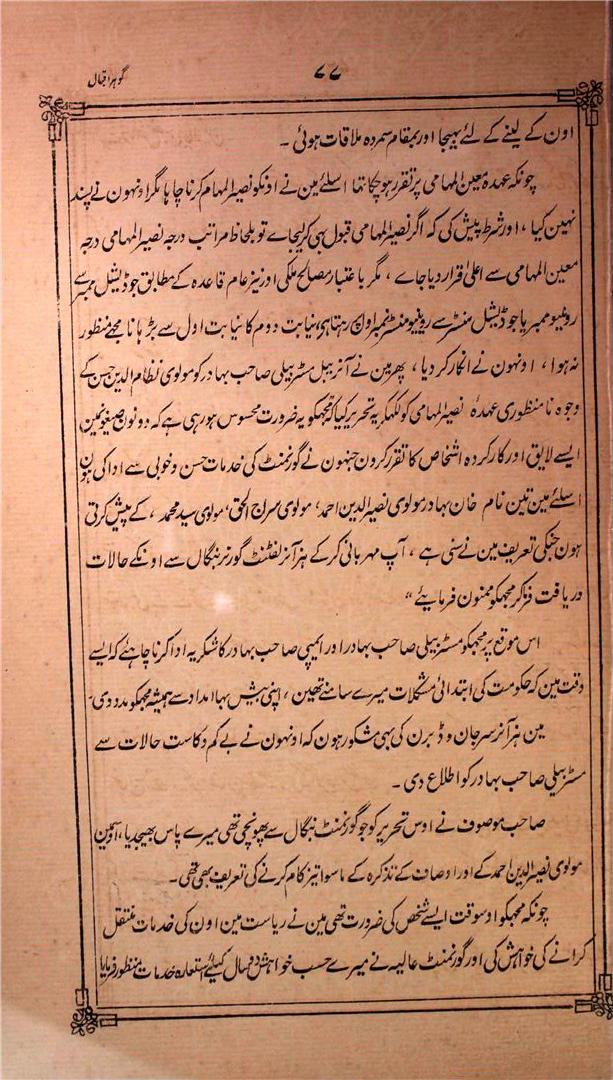 گوہر اقبال
۷۷
اون کے لینے کے لئے بھیجا اور بمقام سمردہ ملاقات ہوئی ۔
چونکہ عہدہ معین المہامی پر تقرر ہو چکا تھا اسلئے مین نے اونکو نصیر المہام کرنا چاہا مگر اونہون نے پسند
نہین کیا ، اور شرط پیش کی کہ اگر نصیر المہامی قبول بھی کر لیجاے تو بلحاظ مراتب درجہ نصیر المہامی درجہ
معین المہامی سے اعلیٰ قرار دیا جاے ، مگر باعتبار مصالح ملکی اور نیز عام قاعدہ کے مطابق جوڈیشل ممبر سے
روینیو ممبر یا جوڈیشل منسٹر سے روینیو منسٹر بنمبر اول رہتا ہی نیابت دوم کا نیابت اول سے بڑہانا مجھے منظور
نہ ہوا ، اونہون نے انکار کر دیا ، پھر مین نے آنریبل مسٹر بیلی صاحب بہادر کو مولوی نظام الدین حسن کے
وجوہ نامنظوری عہدۂ نصیر المہامی کو لکھکر یہ تحریر کیا کہ مجھکو یہ ضرورت محسوس ہو رہی ہے کہ دونون صیغونمین
ایسے لایق اور کارکردہ اشخاص کا تقرر کرون جنہون نے گورنمنٹ کی خدمات حسن و خوبی سے ادا کی ہون
اسلئے مین تین نام خان بہادر مولوی نصیر الدین احمد ، مولوی سراج الحق ، مولوی سید محمد ، کے پیش کرتی
ہون جنکی تعریف مین نے سنی ہے ، آپ مہربانی کر کے ہز آنر لفٹنٹ گورنر بنگال سے اونکے حالات
دریافت فرما کر مجھکو ممنون فرمایئے "
اس موقع پر مجھکو مسٹر بیلی صاحب بہادر اور ایمپی صاحب بہادر کا شکریہ ادا کرنا چاہئے کہ ایسے
وقت مین کہ حکومت کی ابتدائی مشکلات میرے سامنے تھین ، اپنی بیش بہا امداد سے ہمیشہ مجھکو مدد دی ۔
مین ہز آنر سر جان وڈ برن کی بھی مشکور ہون کہ اونہون نے بے کم و کاست حالات سے
مسٹر بیلی صاحب بہادر کو اطلاع دی ۔
صاحب موصوف نے اوس تحریر کو جو گورنمنٹ بنگال سے پھونچی تھی میرے پاس بھیجدیا ، اوسمین
مولوی نصیر الدین احمد کے اور اوصاف کے تذکرہ کے ماسوا تیز کام کرنے کی تعریف بھی تھی ۔
چونکہ مجھکو اوسوقت ایسے شخص کی ضرورت تھی مین نے ریاست مین اون کی خدمات منتقل
کرانے کی خواہش کی اور گورنمنٹ عالیہ نے میرے حسب خواہش دو سال کیلئے استعارہ خدمات منظور فرمایا